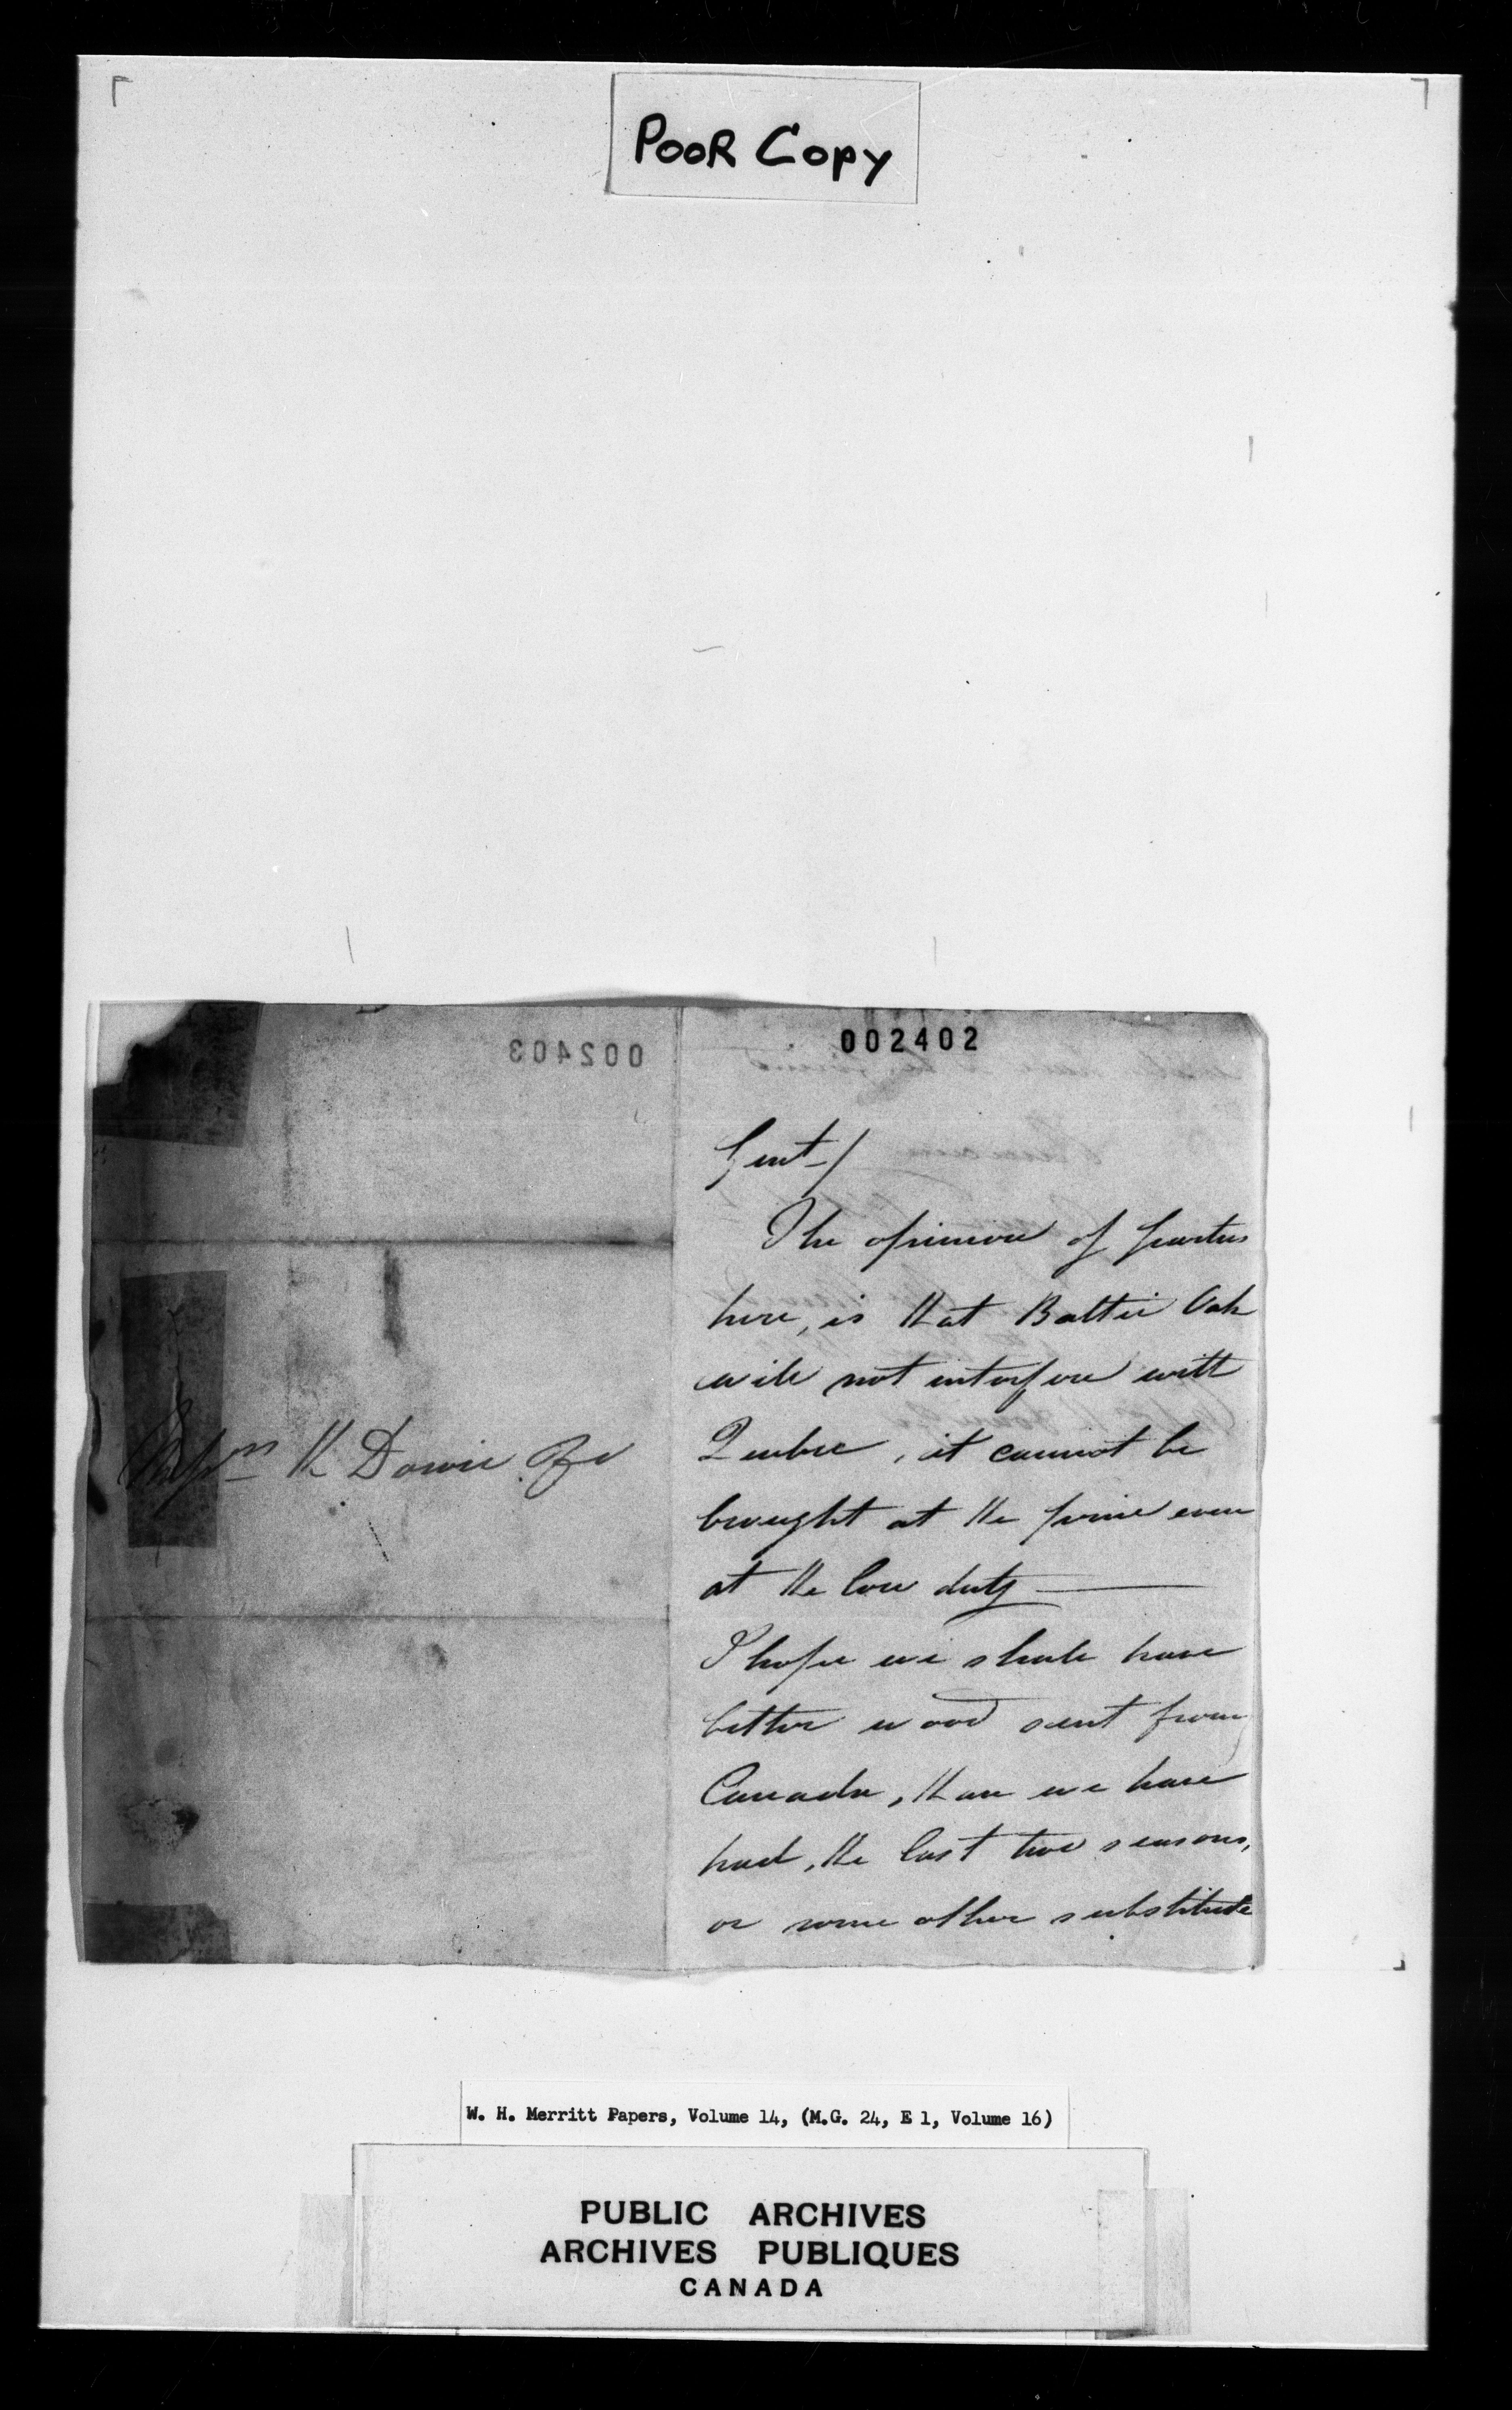 POOR COPY
002403
002402
Messrs K Dowie & Co
Gent-/
The opinion of parties
here, is that Baltic Oak
will not interfere with
Quebec, it cannot be
brought at the price even
at the low duty —
I hope we shall have
better wood sent from
Canada, than we have
had, the last two seasons,
or some other substitute
W. H. Merritt Papers, Volume 14, (M.G. 24, E 1, Volume 16)
PUBLIC ARCHIVES
ARCHIVES PUBLIQUES
CANADA